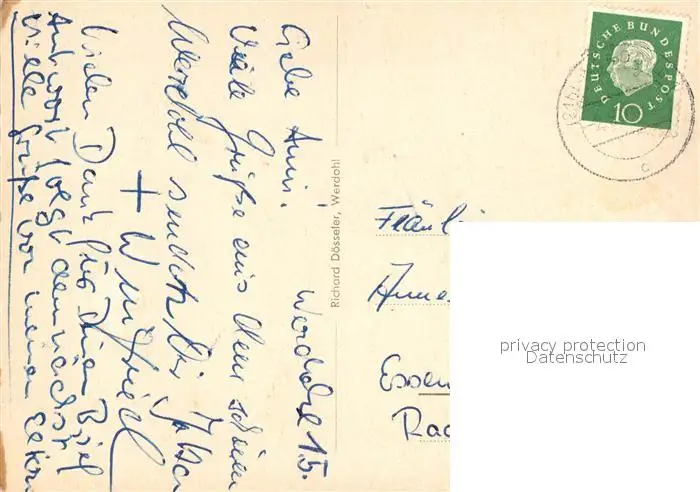 Werdohl 15.
Liebe Anni!
Viele Grüße aus dem schönen
Werdohl sendet Dir
+ Winfried
Vielen Dank für Deinen Brief
Antwort folgt demnächst
Viele Grüße von meinen Eltern
Richard Dösseler, Werdohl
DEUTSCHE BUNDESPOST
10
(21b)
c
Fräulei
Anne
Essen
Ra
privacy protection
Datenschutz